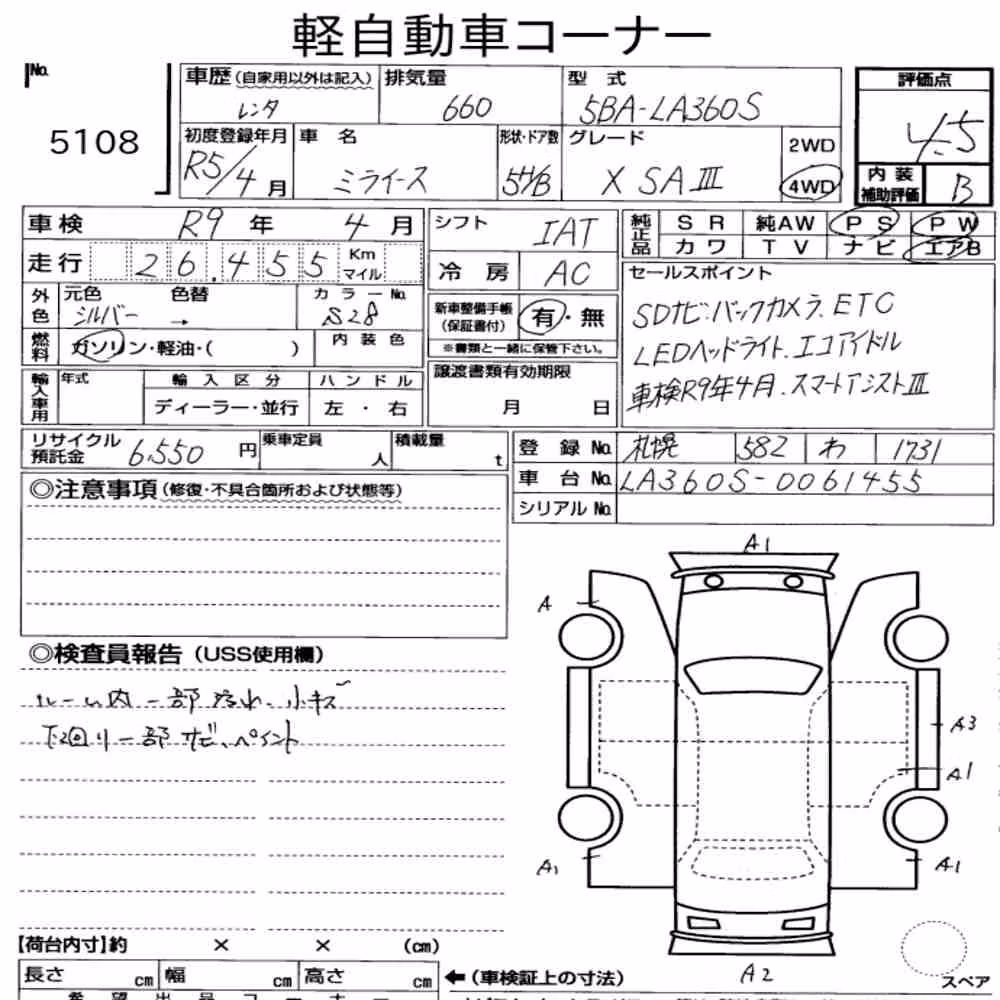 軽自動車コーナー
No. 5108
車歴(自家用以外は記入) レンタ
排気量 660
型式 5BA-LA360S
評価点 4.5
初度登録年月 R5/4月
車名 ミライース
形状・ドア数 5H/B
グレード X SAⅢ
2WD
4WD
内装補助評価 B
車検 R9年 4月
走行 26,455 Km マイル
外色 元色 シルバー 色替 →
カラーNo. S28
燃料 ガソリン・軽油・( )
内装色
輸入車用 年式 輸入区分 ディーラー・並行 ハンドル 左・右
シフト IAT
冷房 AC
新車整備手帳(保証書付) 有・無
※書類と一緒に保管下さい。
譲渡書類有効期限
月 日
純正品 SR 純AW PS PW
カワ TV ナビ エアB
セールスポイント
SDナビ.バックカメラ.ETC
LEDヘッドライト.エコアイドル
車検R9年4月.スマートアシストⅢ
リサイクル預託金 6,550円
乗車定員 人
積載量 t
登録No. 札幌 582 わ 1731
車台No. LA360S-0061455
シリアルNo.
◎注意事項(修復・不具合箇所および状態等)
◎検査員報告(USS使用欄)
ルーム内一部汚れ、小キズ
下回り一部サビ、ペイント
A1
A
A3
A1
A1
A1
A2
スペア
【荷台内寸】約 × × (cm)
長さ cm 幅 cm 高さ cm
←(車検証上の寸法)